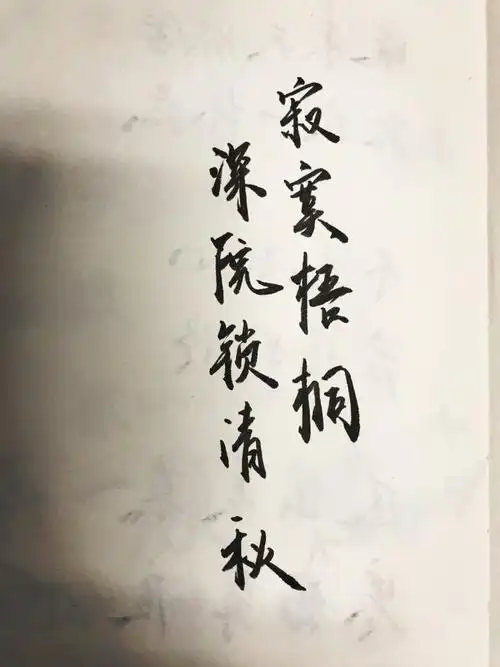 寂寞梧桐
深院锁清秋